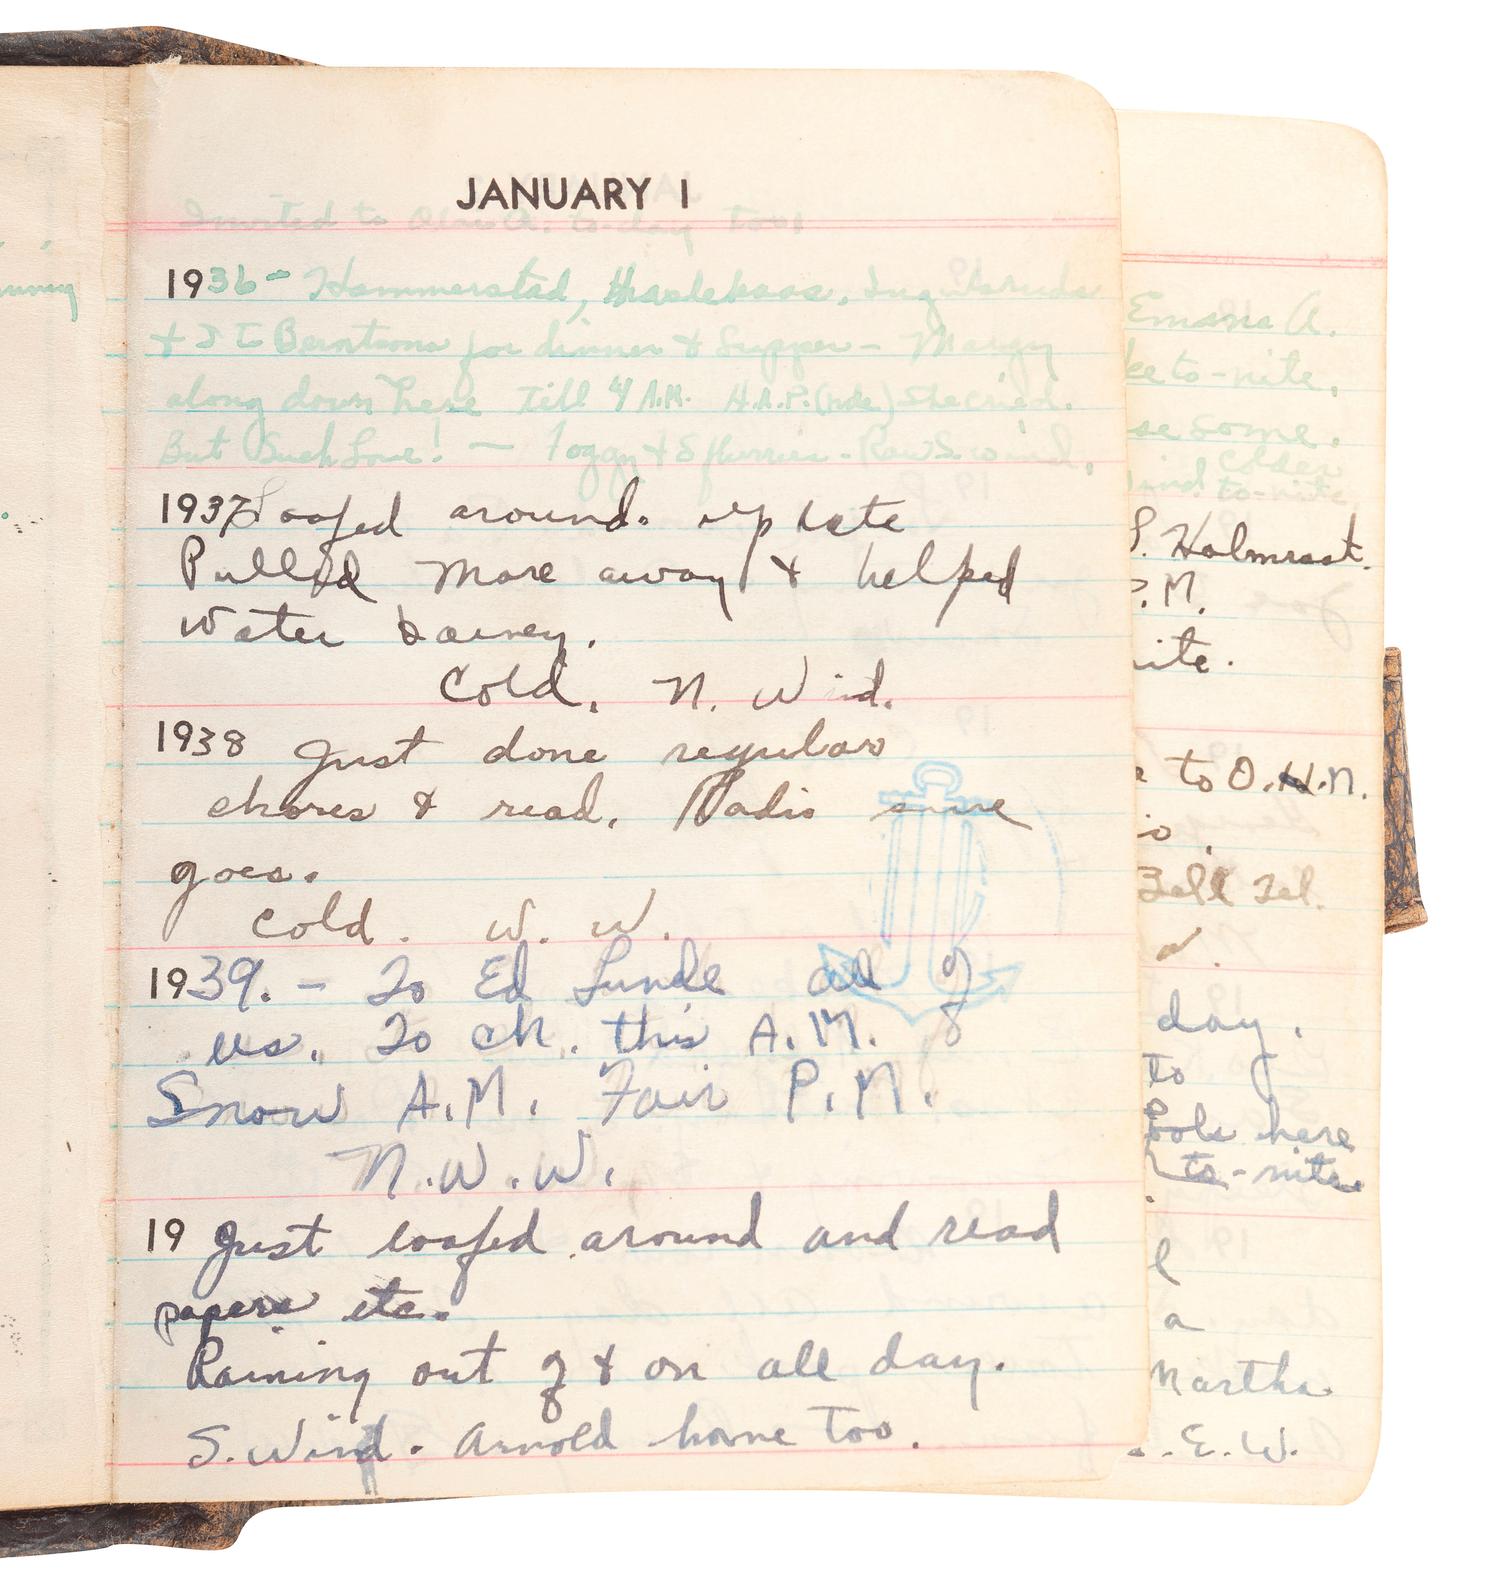 JANUARY 1
Invited to A. to-day too!
1936- Hammerstad,
& I to Berntsons for dinner & Supper -
along down here till 4 A.M. H.A.P. She cried.
But Such Love! - Foggy & S flurries - Raw S. wind,
1937 Loafed around. up late
Pulled more away & helped
water
Cold. N. Wind.
1938 Just done regular
chores & read. Radio sure
goes.
Cold. W. W.
1939. - To Ed Lunde all of
us. To ch. this A.M.
Snow A.M. Fair P.M.
N.W.W.
19 Just loafed around and read
papers etc.
Raining out of & on all day.
S. Wind. Arnold home too.
A.
to-nite,
some.
colder
wind to-nite
P.M.
to O.H.N.
Tel.
day.
to
here
to-nite
l
a
Martha
E.W.